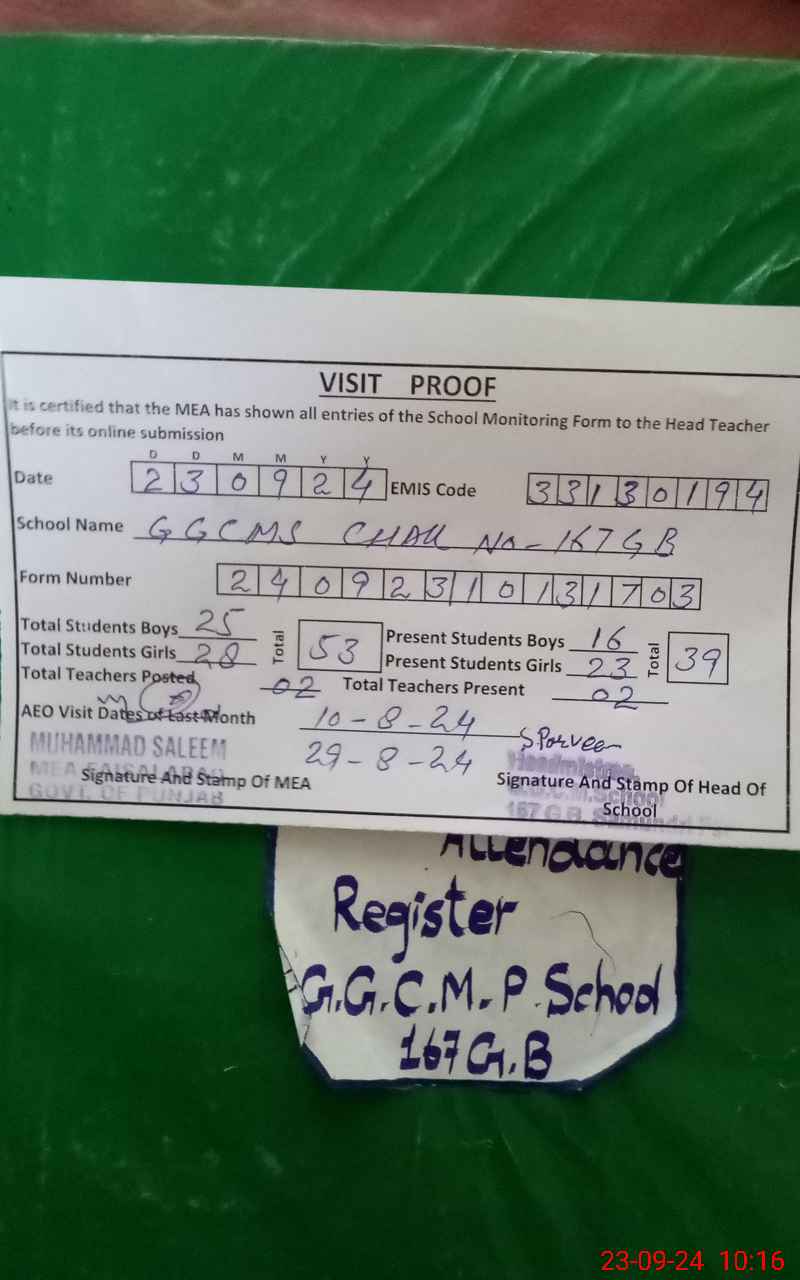 VISIT PROOF
It is certified that the MEA has shown all entries of the School Monitoring Form to the Head Teacher
before its online submission
D D M M Y Y
Date 2 3 0 9 2 4 EMIS Code 3 3 1 3 0 1 9 4
School Name GGCMS CHAK No - 167 GB
Form Number 2 4 0 9 2 3 1 0 1 3 1 7 0 3
Total Students Boys 25 Total 53 Present Students Boys 16 Total 39
Total Students Girls 28 Present Students Girls 23
Total Teachers Posted 02 Total Teachers Present 02
AEO Visit Dates of Last Month 10-8-24
29-8-24
S Parveen
MUHAMMAD SALEEM
MEA FAISALABAD
GOVT. OF PUNJAB
Signature And Stamp Of MEA
Headmistress
School
167 G.B.
Signature And Stamp Of Head Of
School
Attendance
Register
G.G.C.M.P. School
167 G.B
23-09-24 10:16